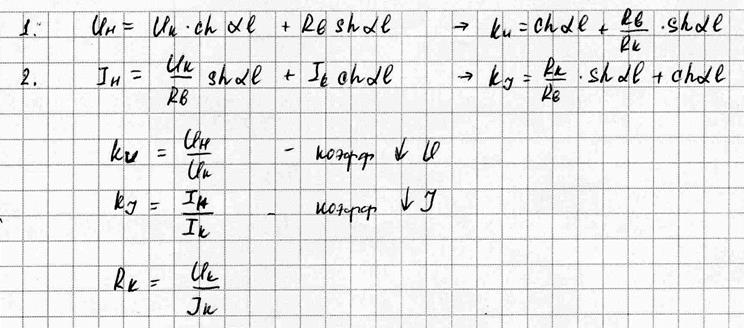 1. Uн = Uк · ch αl + Rв sh αl → kи = ch αl + Rв/Rк · sh αl
2. Iн = Uк/Rв sh αl + Iк ch αl → kJ = Rк/Rв · sh αl + ch αl
kи = Uн/Uк - коэфф ↓ U
kJ = Iн/Iк - коэфф ↓ J
Rк = Uк/Jк